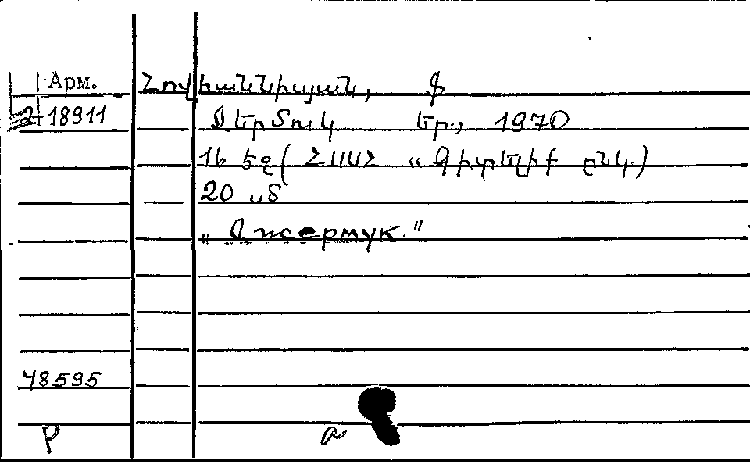 Арм. Հովհաննիսյան, Ֆ
2-18911 Ջերմուկ Եր., 1970
16 էջ ( ՀՍՍՀ « Գիտելիք ընկ.)
20 սմ
„ Джермук. "
78595